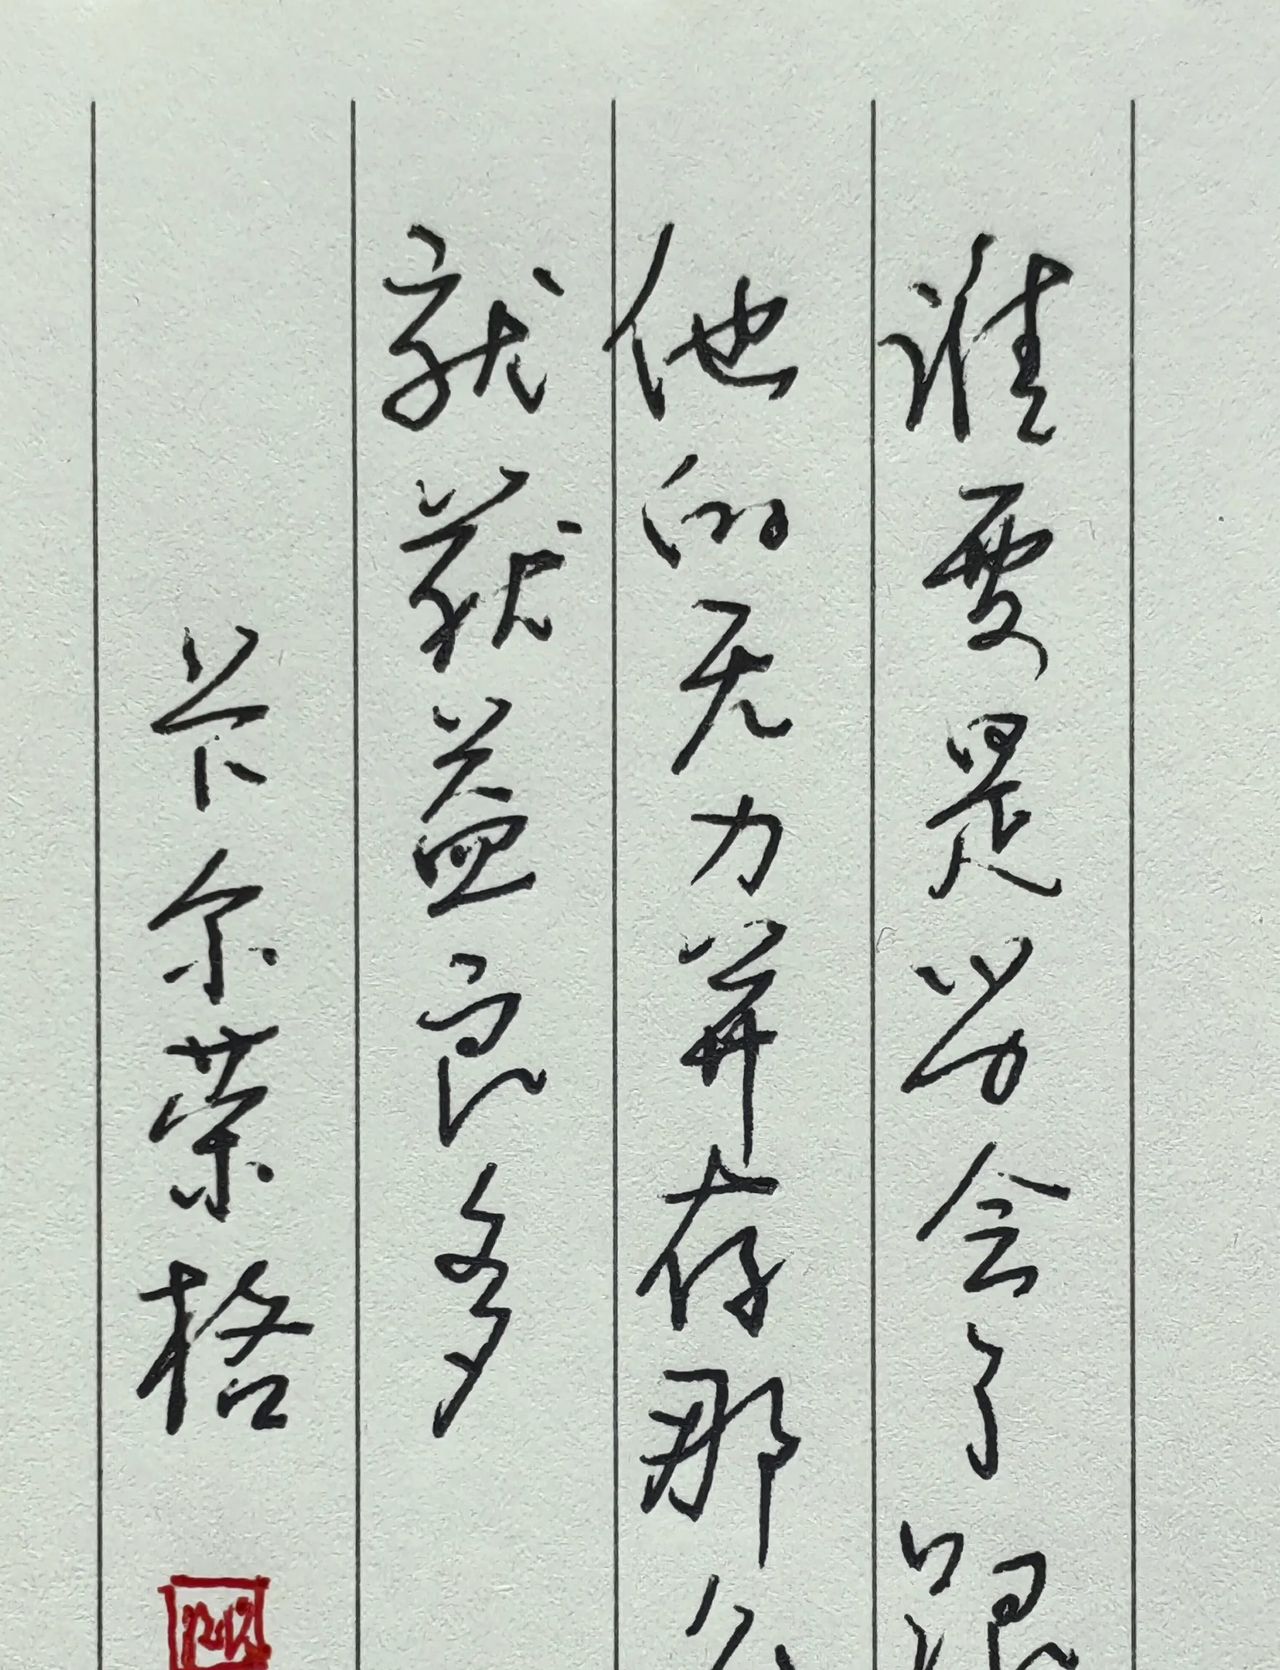 谁要是学会了跟
他的无力并存那么
就获益良多
卡尔荣格